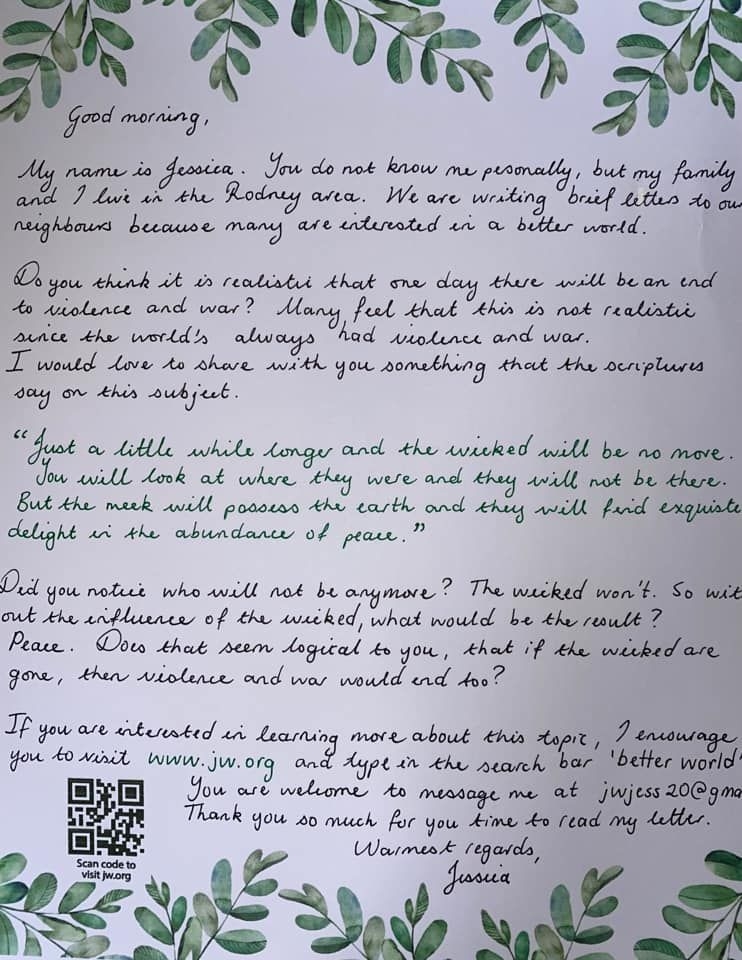 Good morning,
My name is Jessica. You do not know me pesonally, but my family
and I live in the Rodney area. We are writing brief letters to our
neighbours because many are interested in a better world.
Do you think it is realistic that one day there will be an end
to violence and war? Many feel that this is not realistic
since the world's always had violence and war.
I would love to share with you something that the scriptures
say on this subject.
"Just a little while longer and the wicked will be no more.
You will look at where they were and they will not be there.
But the meek will possess the earth and they will find exquiste
delight in the abundance of peace."
Did you notice who will not be anymore? The wicked won't. So wit
out the influence of the wicked, what would be the result?
Peace. Does that seem logical to you, that if the wicked are
gone, then violence and war would end too?
If you are interested in learning more about this topic, I encourage
you to visit www.jw.org and type in the search bar 'better world'
You are welcome to message me at jwjess20@gma
Thank you so much for you time to read my letter.
Warmest regards,
Jessica
Scan code to
visit jw.org